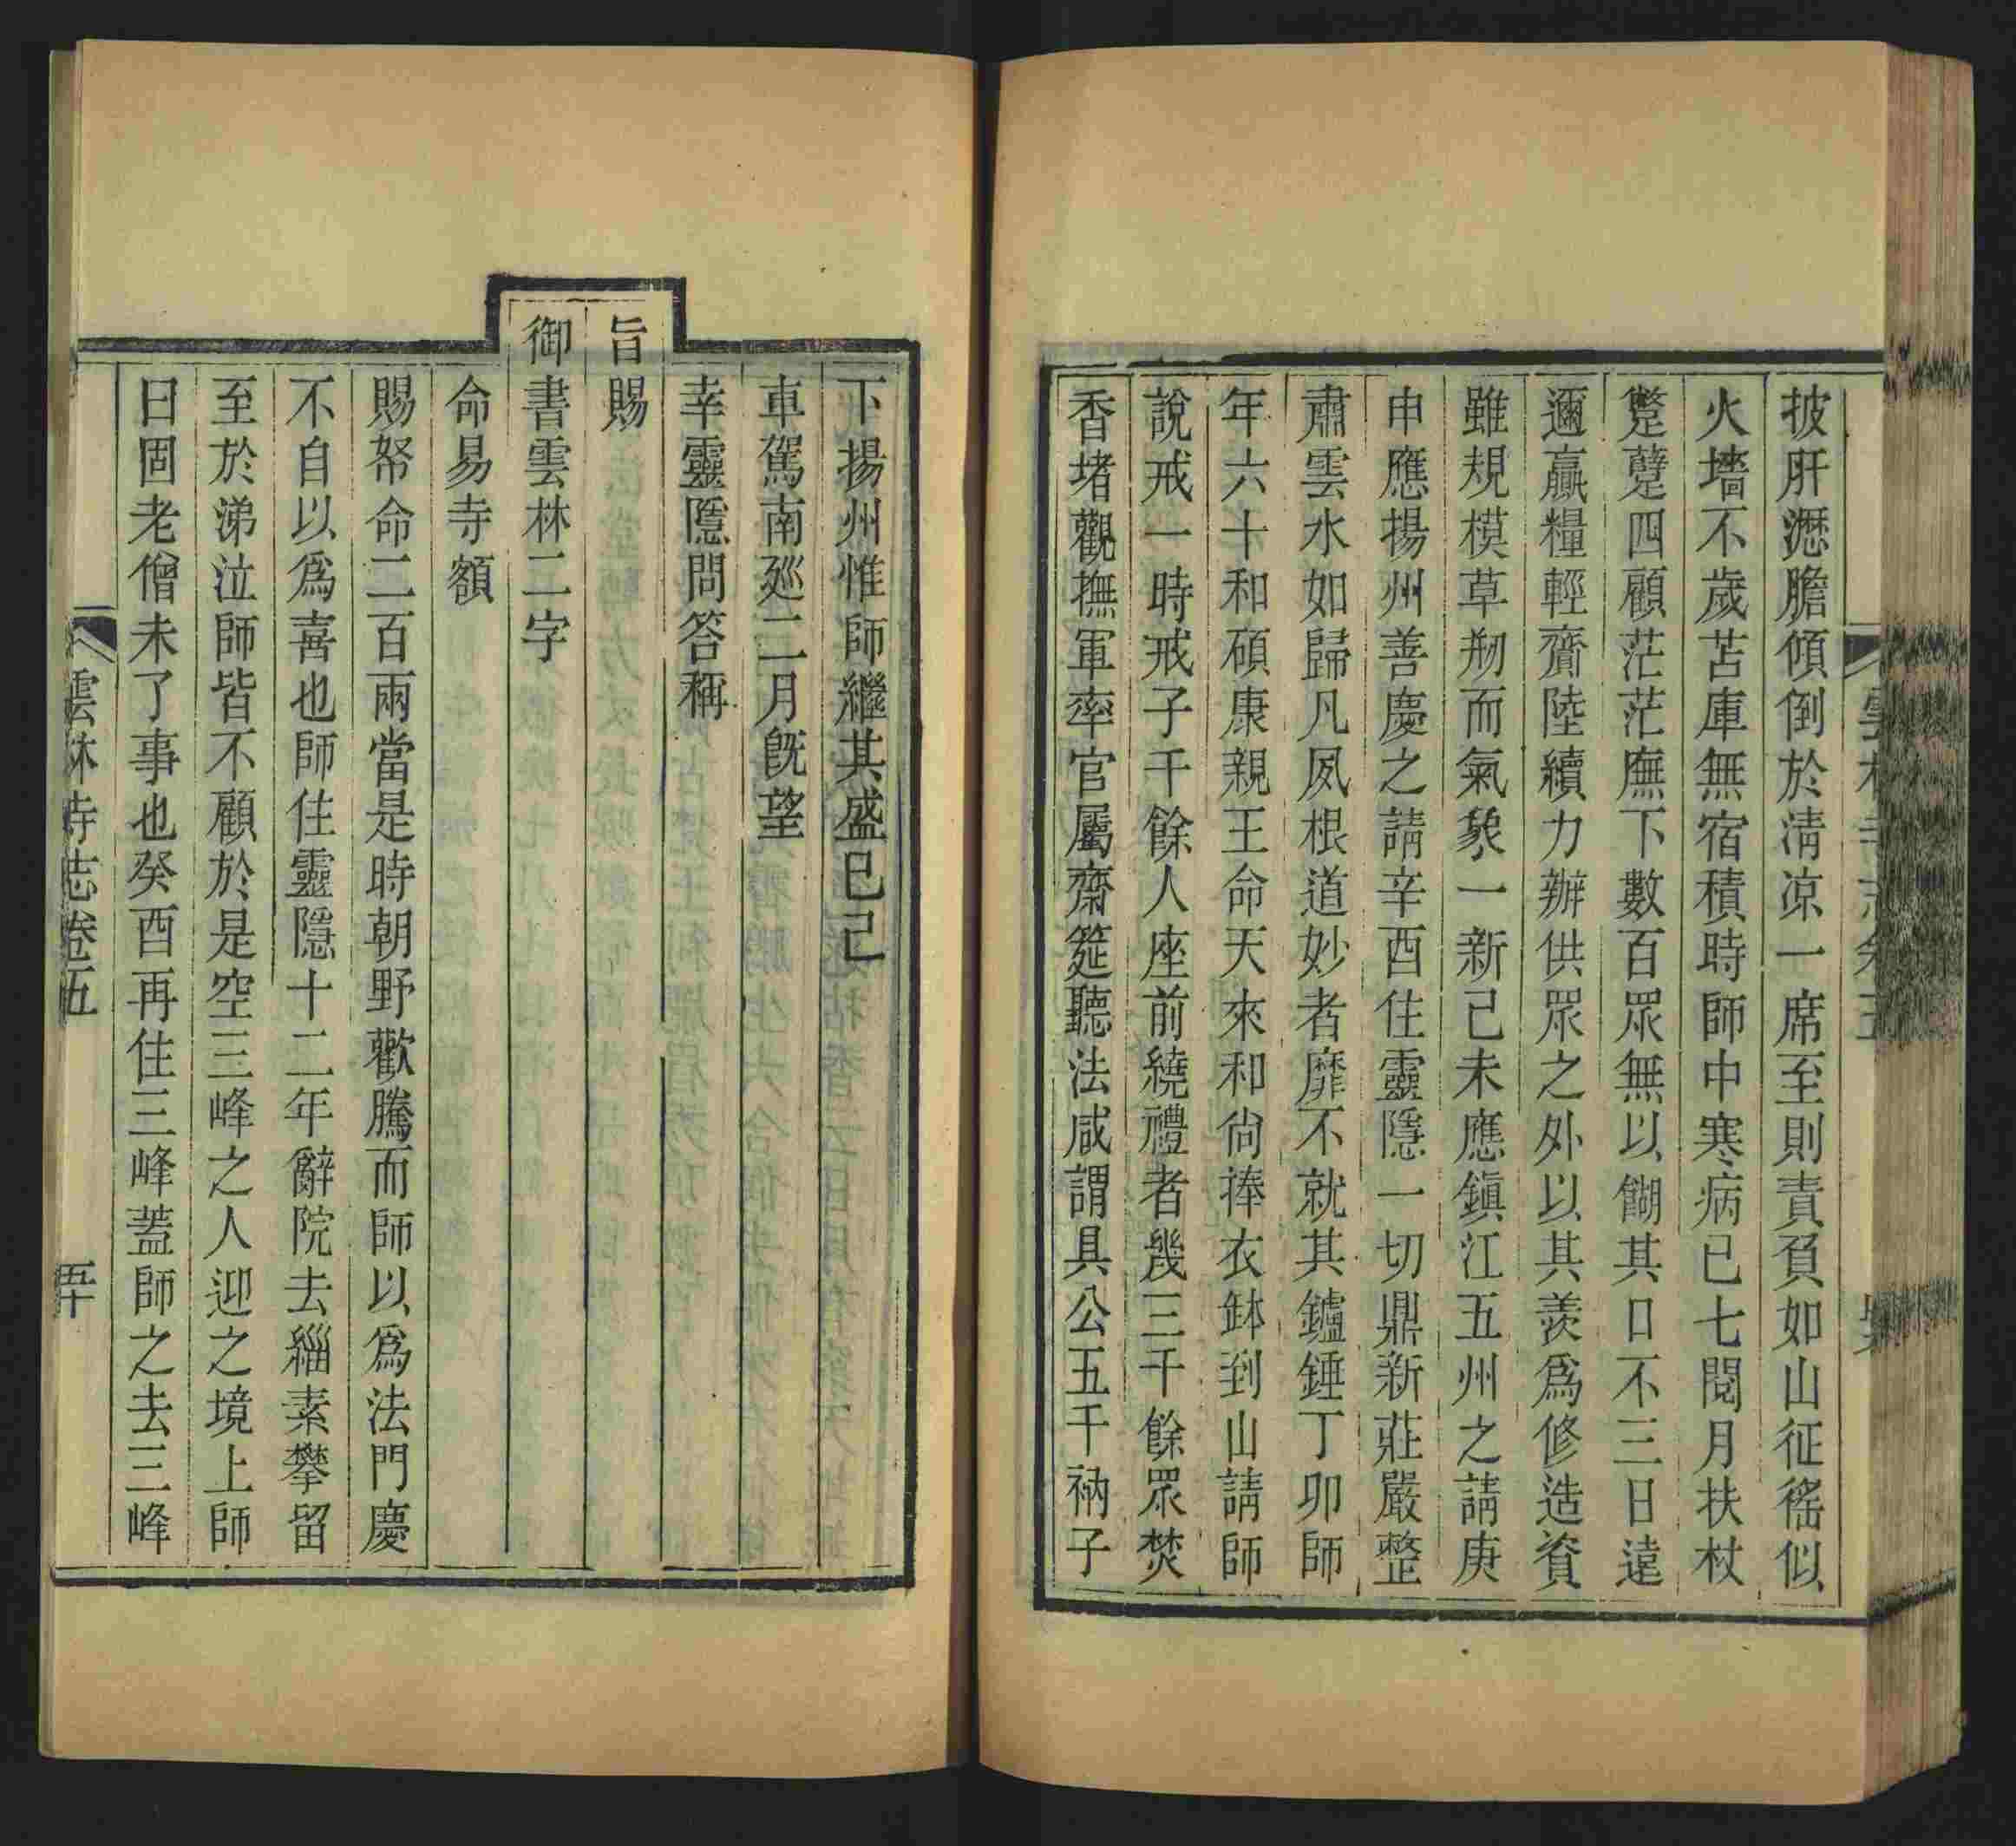 披肝瀝膽傾倒於淸凉一席至則責負如山征徭似
火墻不歲苫庫無宿積時師中寒病已七閱月扶杖
蹩躠四顧茫茫廡下數百眾無以餬其口不三日遠
邇贏糧輕齎陸續力辦供眾之外以其羨爲修造資
雖規模草剏而氣象一新己未應鎭江五州之請庚
申應揚州善慶之請辛酉住靈隱一切鼎新莊嚴整
肅雲水如歸凡夙根道妙者靡不就其鑪錘丁卯師
年六十和碩康親王命天來和尙捧衣鉢到山請師
說戒一時戒子千餘人座前繞禮者幾三千餘眾焚
香堵觀撫軍率官屬齋筵聽法咸謂具公五千衲子
下揚州惟師繼其盛已己
車駕南廵二月旣望
幸靈隱問答稱
旨賜
御書雲林二字
命易寺額
賜帑命二百兩當是時朝野歡騰而師以爲法門慶
不自以爲喜也師住靈隱十二年辭院去緇素攀留
至於涕泣師皆不顧於是空三峰之人迎之境上師
曰固老僧未了事也癸酉再住三峰蓋師之去三峰
雲林寺志卷五
五十